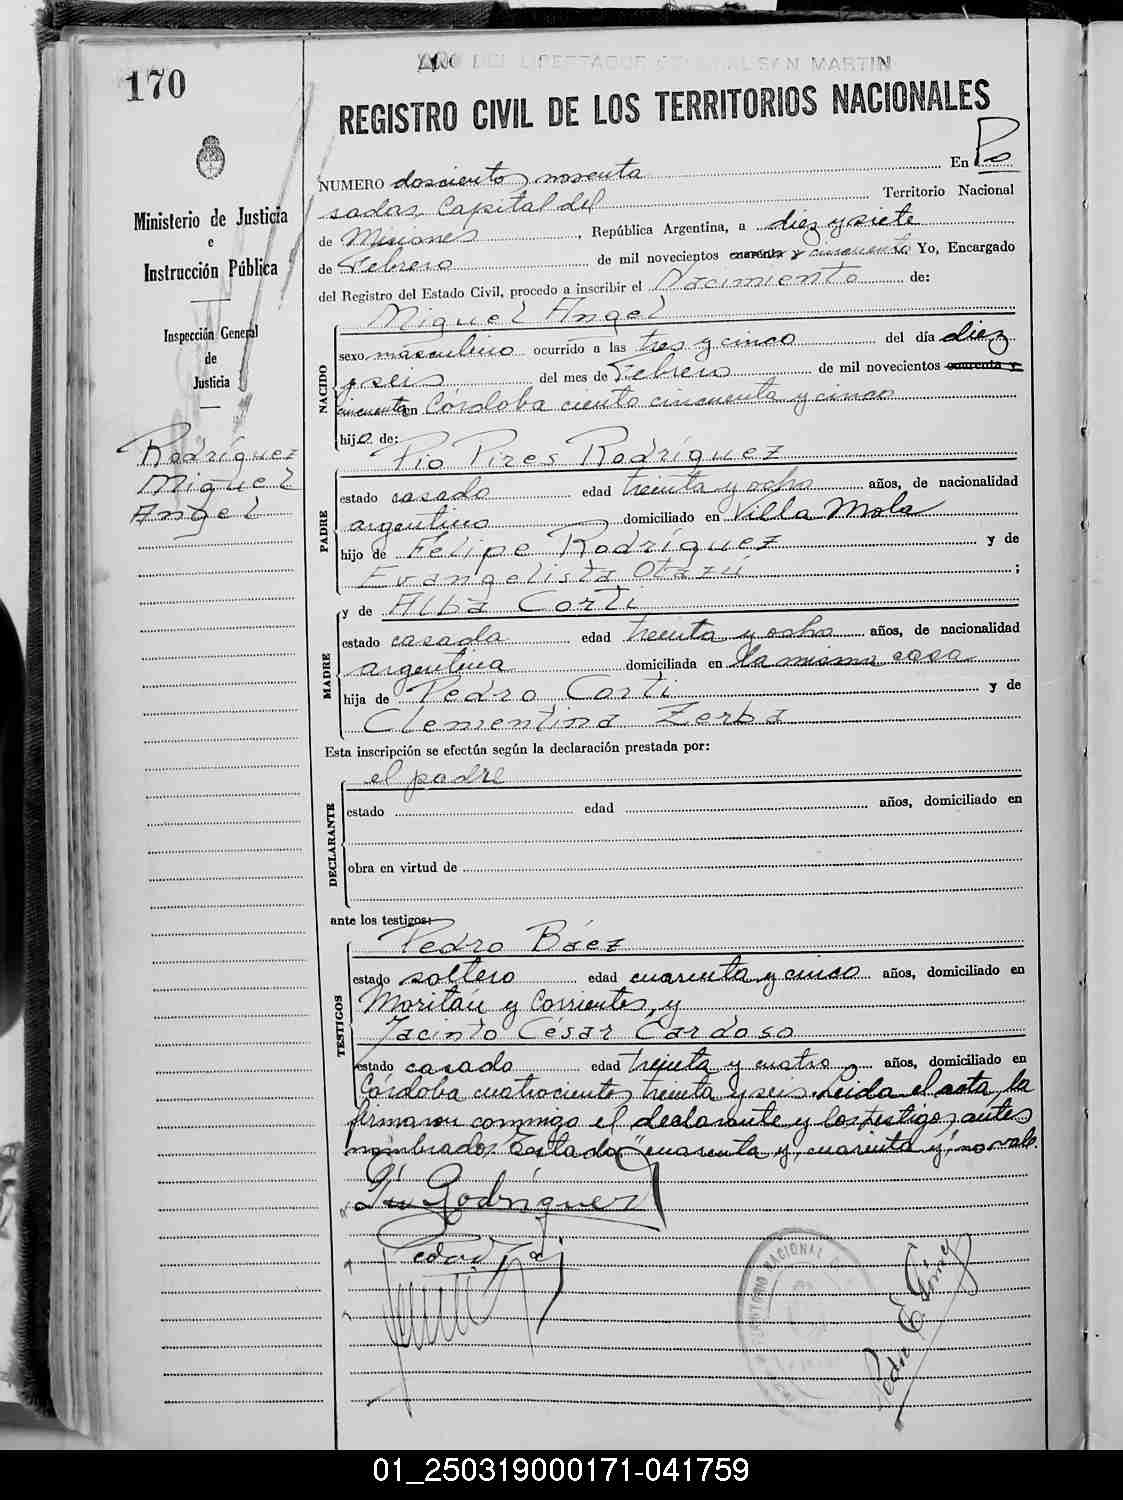 170
AÑO DEL LIBERTADOR GENERAL SAN MARTIN
REGISTRO CIVIL DE LOS TERRITORIOS NACIONALES
Ministerio de Justicia
e
Instrucción Pública
Inspección General
de
Justicia
Rodríguez
Miguel
Angel
NUMERO doscientos noventa En Po
sadas, Capital del Territorio Nacional
de Misiones, República Argentina, a diez y siete
de Febrero de mil novecientos cuarenta y cincuenta Yo, Encargado
del Registro del Estado Civil, procedo a inscribir el Nacimiento de:
Miguel Angel
NACIDO
sexo masculino ocurrido a las tres y cinco del día diez
y seis del mes de Febrero de mil novecientos cuarenta y
cincuenta en Córdoba ciento cincuenta y cinco
hijo de:
Pio Pires Rodríguez
PADRE
estado casado edad treinta y ocho años, de nacionalidad
argentino domiciliado en Villa Mola
hijo de Felipe Rodríguez y de
Evangelista Otazú ;
y de Alba Corti
MADRE
estado casada edad treinta y ocho años, de nacionalidad
argentina domiciliada en la misma casa
hija de Pedro Corti y de
Clementina Zerba
Esta inscripción se efectúa según la declaración prestada por:
el padre
DECLARANTE
estado edad años, domiciliado en
obra en virtud de
ante los testigos:
Pedro Báez
TESTIGOS
estado soltero edad cuarenta y cinco años, domiciliado en
y Corrientes, y
Jacinto César Cardoso
estado casado edad treinta y cuatro años, domiciliado en
Córdoba cuatrocientos treinta y seis. Leida el acta, la
firmaron conmigo el declarante y los testigos antes
nombrados. Testado "cuarenta y, cuarenta y", no vale.
Pio Rodríguez
TERRITORIO NACIONAL
01_250319000171-041759